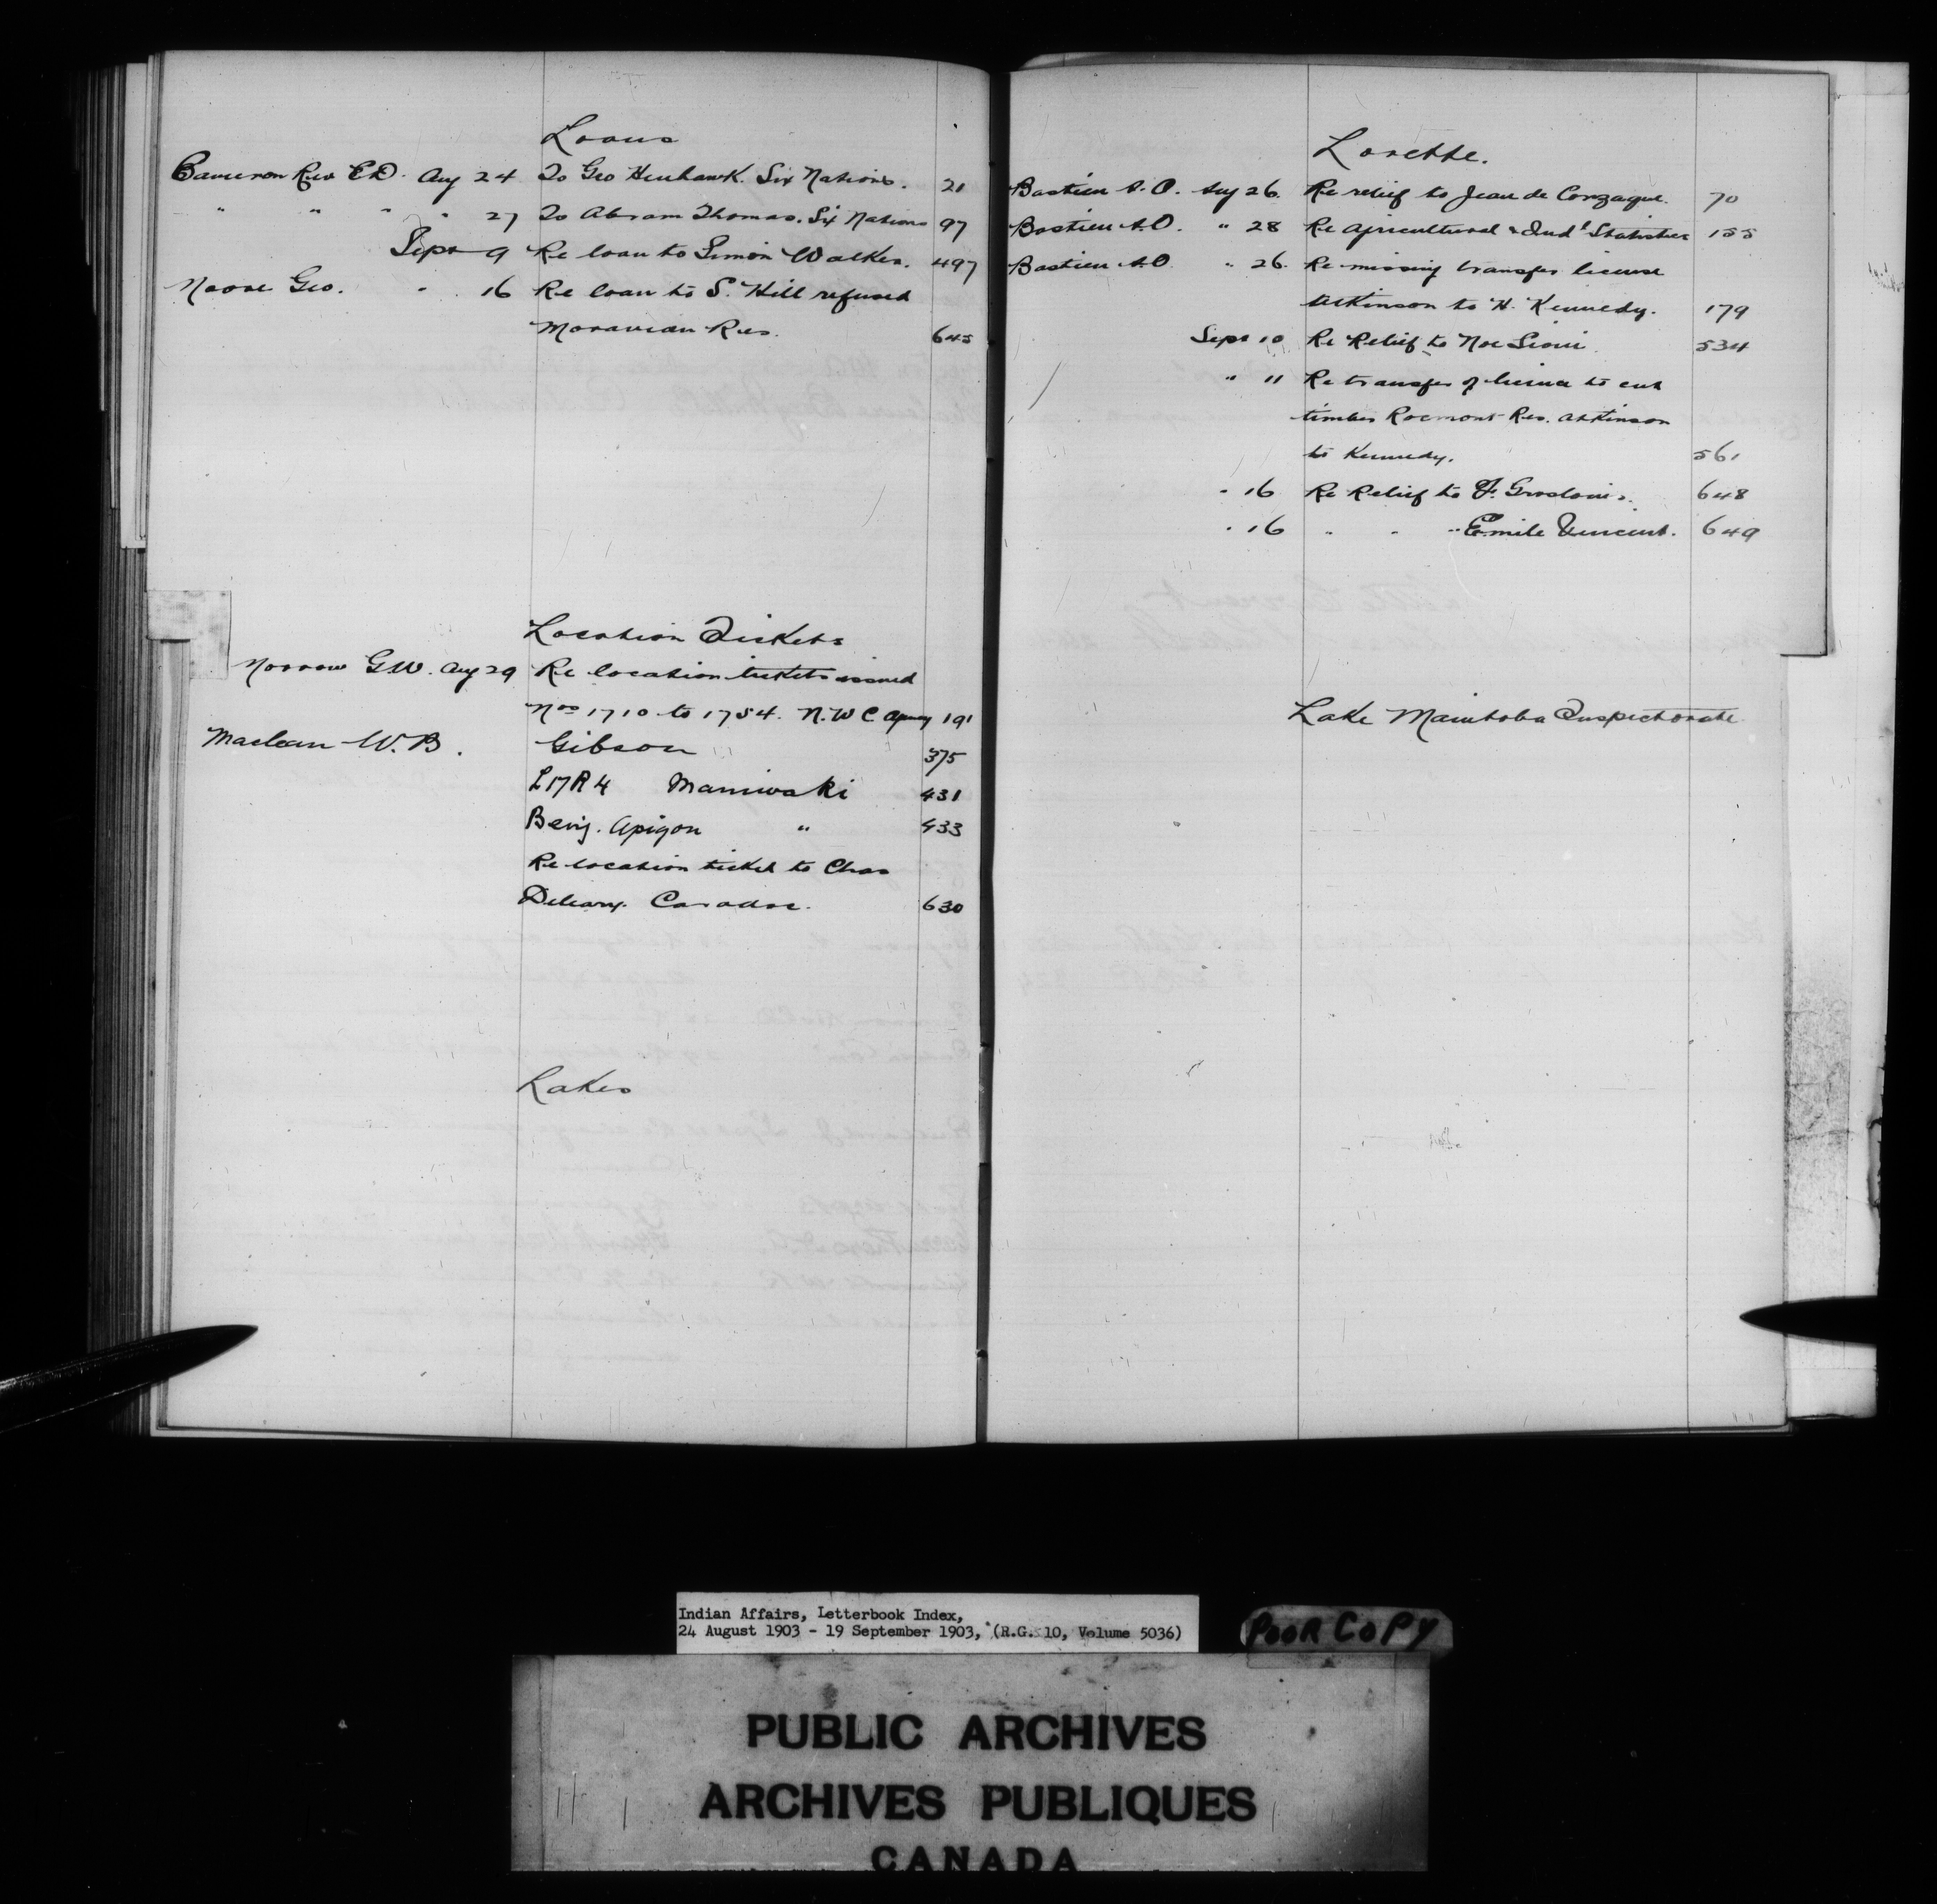 Loans
Cameron Rev E.D. Aug 24 To Geo Henhawk. Six Nations. 21
" " " " 27 To Abram Thomas. Six Nations 97
Sept 9 Re loan to Simon Walker. 497
Moore Geo. " 16 Re loan to S. Hill refused
Moravian Res. 645
Location Tickets
Morrow G.W. Aug 29 Re location tickets issued
Nos 1710 to 1754. N.W.C. Agency 191
Maclean W.B. Gibson 375
L17R4 Maniwaki 431
Benj. Apigon " 433
Re location ticket to Chas
Deleary. Caradoc. 630
Lakes
Lorette.
Bastien A.O. Aug 26. Re relief to Jean de Gonzague. 70
Bastien A.O. " 28 Re Agricultural & Indl Statistics 155
Bastien A.O. " 26. Re missing transfer license
Atkinson to H. Kennedy. 179
Sept 10 Re Relief to Noe Sioui 534
" 11 Re transfer of license to cut
timber Rocmont Res. Atkinson
to Kennedy. 561
" 16 Re Relief to F. Groslouis. 648
" 16 " " " Emile Vincent. 649
Lake Manitoba Inspectorate
Indian Affairs, Letterbook Index,
24 August 1903 - 19 September 1903, (R.G. 10, Volume 5036)
POOR COPY
PUBLIC ARCHIVES
ARCHIVES PUBLIQUES
CANADA